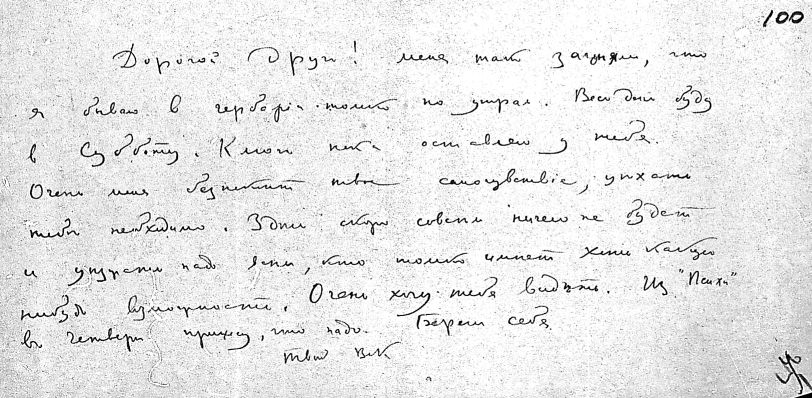 100
Дорогой Друг! меня так загнали, что
я бываю в гербарiи только по утрам. Весь день буду
в Субботу. Ключ пока оставлю у тебя.
Очень меня безпокоит твое самочувствiе, уехать
тебе необходимо. Здесь скоро совсем ничего не будет
и уезжать надо всем, кто только имеет хоть какую
нибудь возможность. Очень хочу тебя видѣть. Из "Психи"
въ четверг принесу, что надо. Береги себя
твой ВК